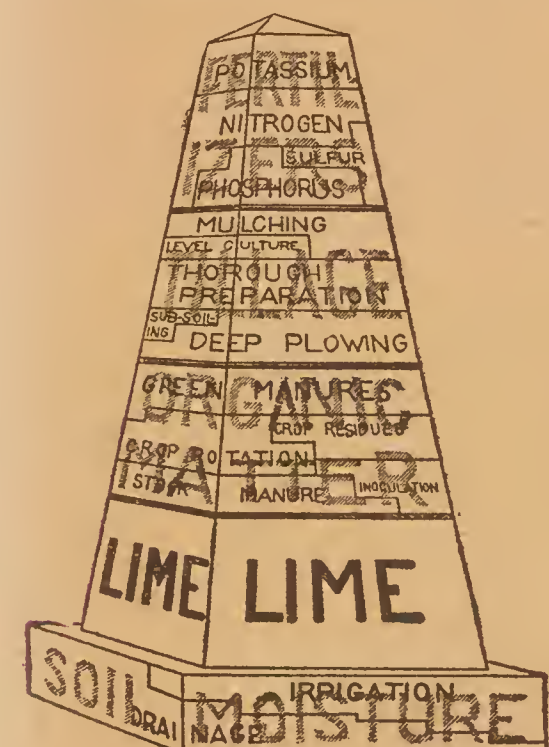 FERTIL
IZERS
POTASSIUM
NITROGEN
SULFUR
PHOSPHORUS
TILLAGE
MULCHING
LEVEL CULTURE
THOROUGH
PREPARATION
SUB-SOIL
ING
DEEP PLOWING
ORGANIC
MATTER
GREEN MANURES
CROP RESIDUES
CROP ROTATION
STOCK MANURE
INOCULATION
LIME LIME
SOIL MOISTURE
IRRIGATION
DRAINAGE